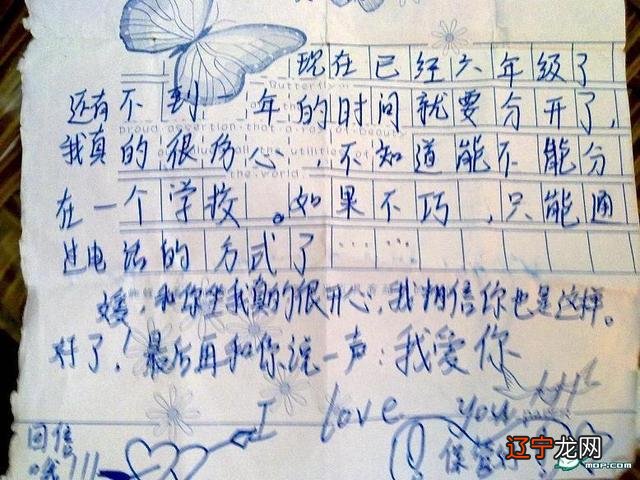 现在已经六年级了
还有不到一年的时间就要分开了，
我真的很伤心，不知道能不能分
在一个学校。如果不巧，只能通
过电话的方式了……
媛，和你坐我真的很开心，我相信你也是这样。
好了！最后再和你说一声：我爱你
I love you
回信
哦!!!
保管好
辽宁龙网
MOP.COM
Butterfly
proud assertion that a ray of beauty
all the utilities of
the world.